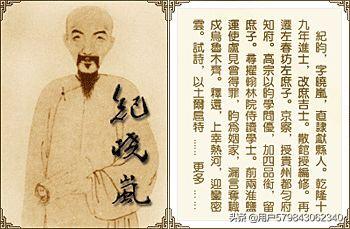 紀晓嵐
紀昀，字曉嵐，直隸獻縣人。乾隆十
九年進士，改庶吉士。散館授編修。再
遷左春坊左庶子。京察，授貴州都勻府
知府。高宗以昀學問優，加四品銜，留
庶子。尋擢翰林院侍讀學士。前兩淮鹽
運使盧見曾得罪，昀為姻家，漏言奪職
戍烏魯木齊。釋還，上幸熱河，迎鑾密
雲。試詩，以土爾扈特……更多……
头条 @用户579843062340